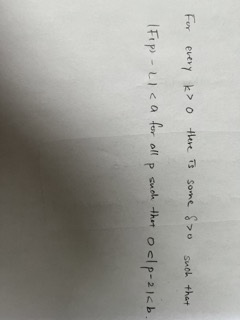 For every k > 0 there is some δ > 0 such that
|F(p) - L| < a for all p such that 0 < |p - 2| < b.